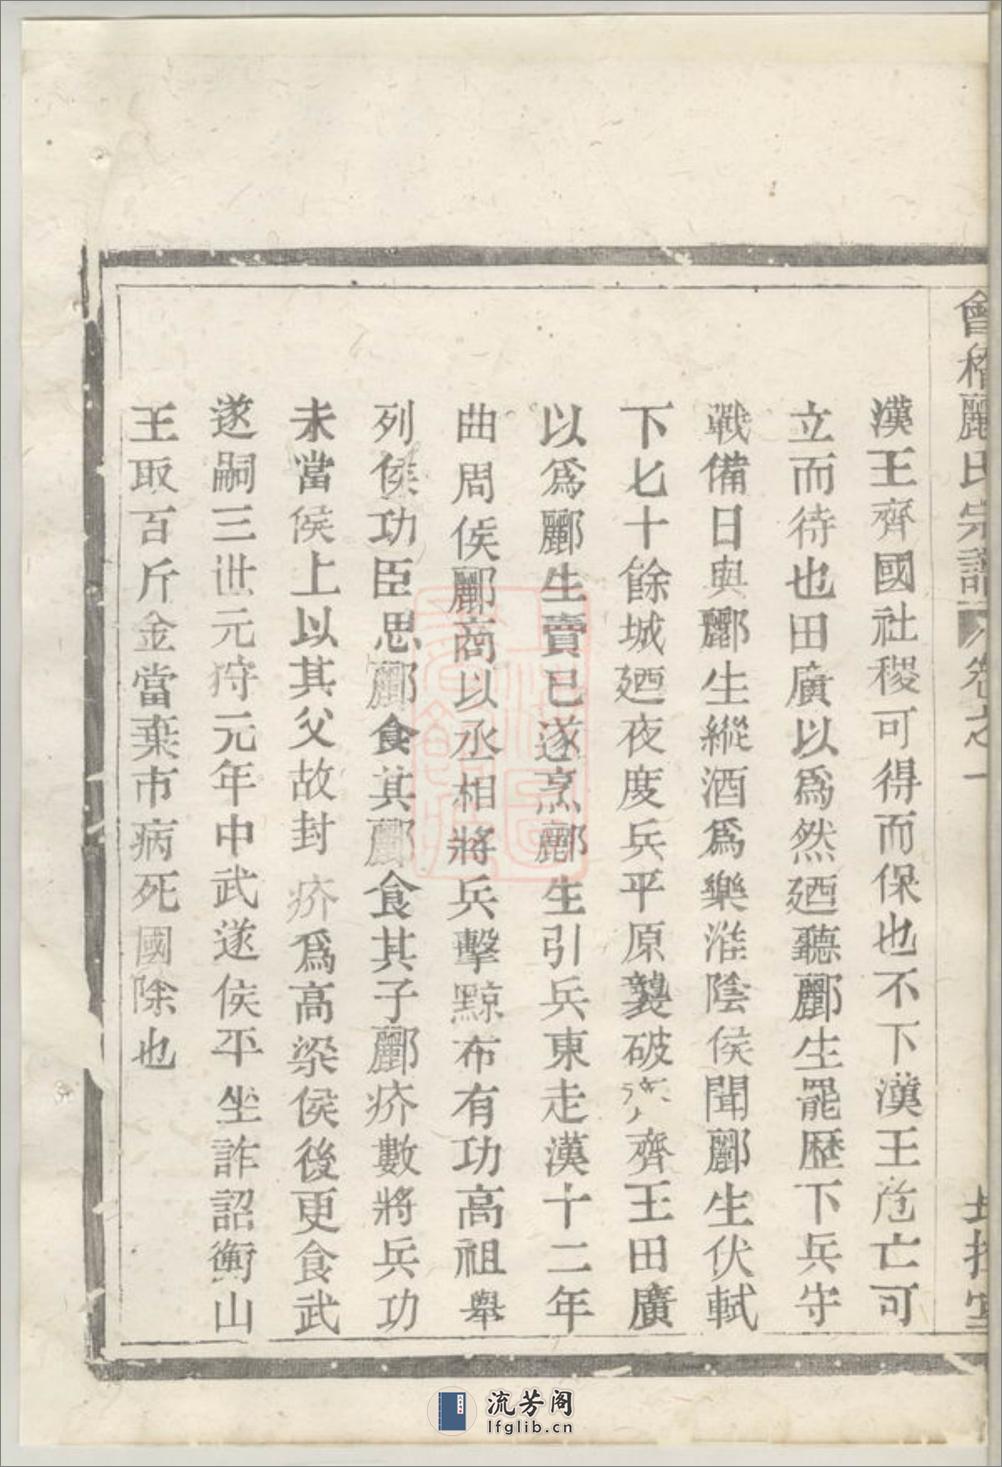 會稽酈氏宗譜 卷之一
漢王齊國社稷可得而保也不下漢王危亡可
立而待也田廣以爲然廼聽酈生罷歷下兵守
戰備日與酈生縱酒爲樂淮陰侯聞酈生伏軾
下七十餘城廼夜度兵平原襲破齊王田廣
以爲酈生賣已遂烹酈生引兵東走漢十二年
曲周侯酈商以丞相將兵擊黥布有功高祖舉
列侯功臣思酈食其酈食其子酈疥數將兵功
未當侯上以其父故封疥爲高梁侯後更食武
遂嗣三世元狩元年中武遂侯平坐詐詔衡山
王取百斤金當棄市病死國除也
流芳阁
lfglib.cn